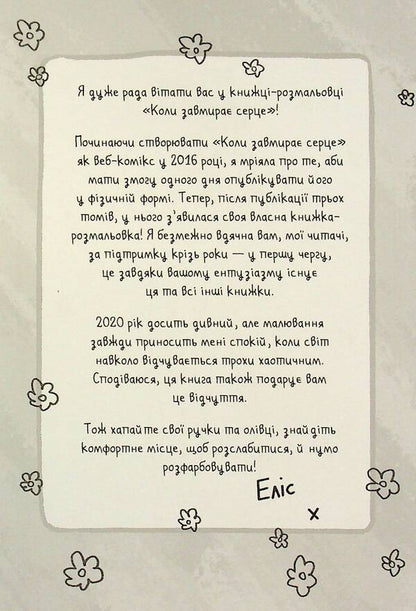 Я дуже рада вітати вас у книжці-розмальовці
«Коли завмирає серце»!
Починаючи створювати «Коли завмирає серце»
як веб-комікс у 2016 році, я мріяла про те, аби
мати змогу одного дня опублікувати його
у фізичній формі. Тепер, після публікації трьох
томів, у нього з'явилася своя власна книжка-
розмальовка! Я безмежно вдячна вам, мої читачі,
за підтримку крізь роки — у першу чергу,
це завдяки вашому ентузіазму існує
ця та всі інші книжки.
2020 рік досить дивний, але малювання
завжди приносить мені спокій, коли світ
навколо відчувається трохи хаотичним.
Сподіваюся, ця книга також подарує вам
це відчуття.
Тож хапайте свої ручки та олівці, знайдіть
комфортне місце, щоб розслабитися, й нумо
розфарбовувати!
Еліс
x